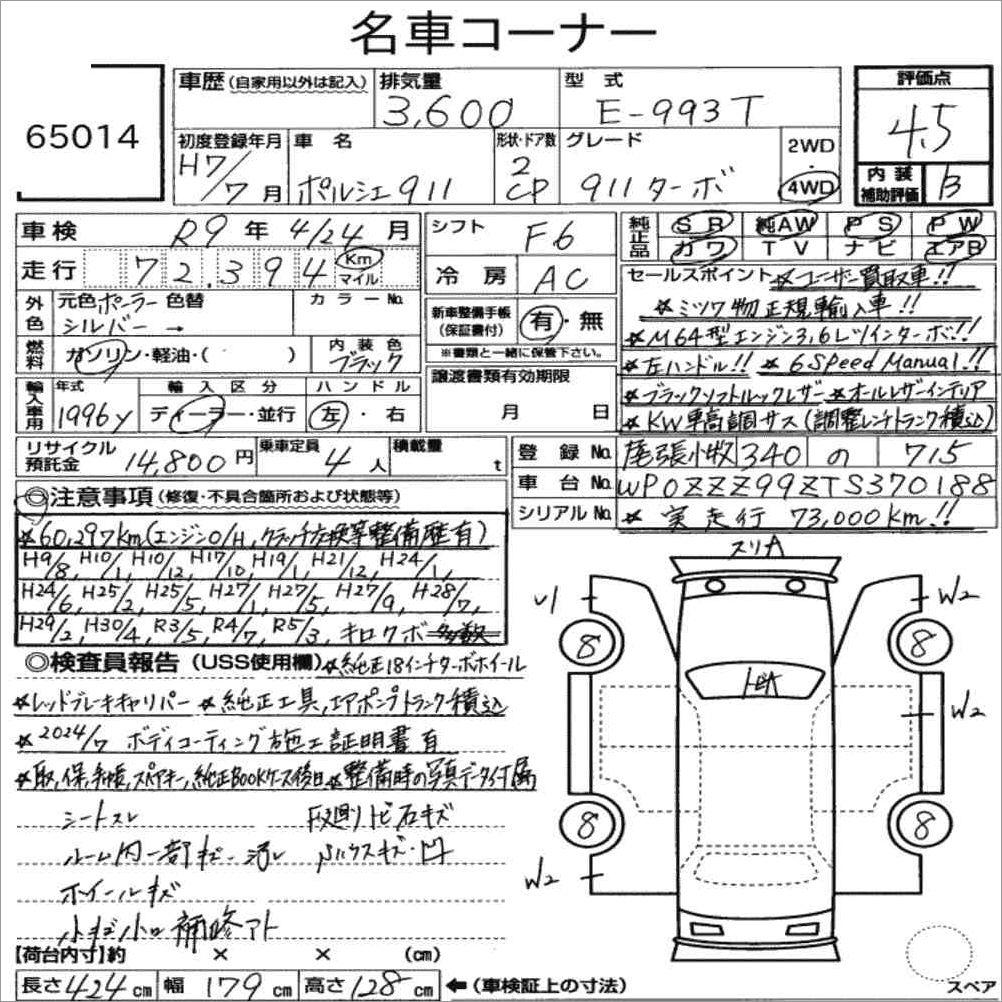 名車コーナー
65014
車歴 (自家用以外は記入) 排気量 3,600 型式 E-993T 評価点 4.5
初度登録年月 H7/7月 車名 ポルシェ911 形状・ドア数 2 CP グレード 911ターボ 2WD・4WD 内装補助評価 B
車検 R9年 4/24月 シフト F6 純正品 SR 純AW PS PW
カワ TV ナビ エアB
走行 72.394 Km マイル 冷房 AC
セールスポイント ☆ユーザー買取車!!
☆ミツワ物正規輸入車!!
☆M64型エンジン3,6Lツインターボ!!
☆左ハンドル!! ☆6Speed Manual!!
☆ブラックソフトルックレザー ☆オールレザーインテリア
☆KW車高調サス(調整レンチトランク積込)
外色 元色 ポーラーシルバー 色替 → カラーNo. 新車整備手帳(保証書付) 有・無
※書類と一緒に保管下さい。
燃料 ガソリン・軽油・( ) 内装色 ブラック 譲渡書類有効期限
月 日
輸入車用 年式 1996y 輸入区分 ディーラー・並行 ハンドル 左・右
リサイクル預託金 14,800円 乗車定員 4人 積載量 t
登録No. 尾張小牧 340 の 715
車台No. WP0ZZZ99ZTS370188
シリアルNo. ☆実走行 73,000km!!
◎注意事項(修復・不具合箇所および状態等)
☆60,297km(エンジンO/H,クラッチ交換等整備歴有)
H9/8, H10/1, H10/12, H17/10, H19/1, H21/12, H24/1,
H24/6, H25/2, H25/5, H27/1, H27/5, H27/9, H28/7,
H29/2, H30/4, R3/5, R4/7, R5/3, キロクボ多数
◎検査員報告(USS使用欄) ☆純正18インチターボホイール
☆レッドブレーキキャリパー ☆純正工具,エアポンプトランク積込
☆2024/7 ボディコーティング施工証明書有
☆取,保,手帳,スペアキー,純正BOOKケース後日 ☆整備時の写真データ付属
シートスレ F廻りトビ石キズ
ルーム内一部キズ・汚レ
ホイールキズ
小キズ小凹補修アト
スリA
U1
W2
8
8
トビA
W2
8
8
W2
【荷台内寸】約 × × (cm)
長さ 424cm 幅 179cm 高さ 128cm ←(車検証上の寸法)
スペア